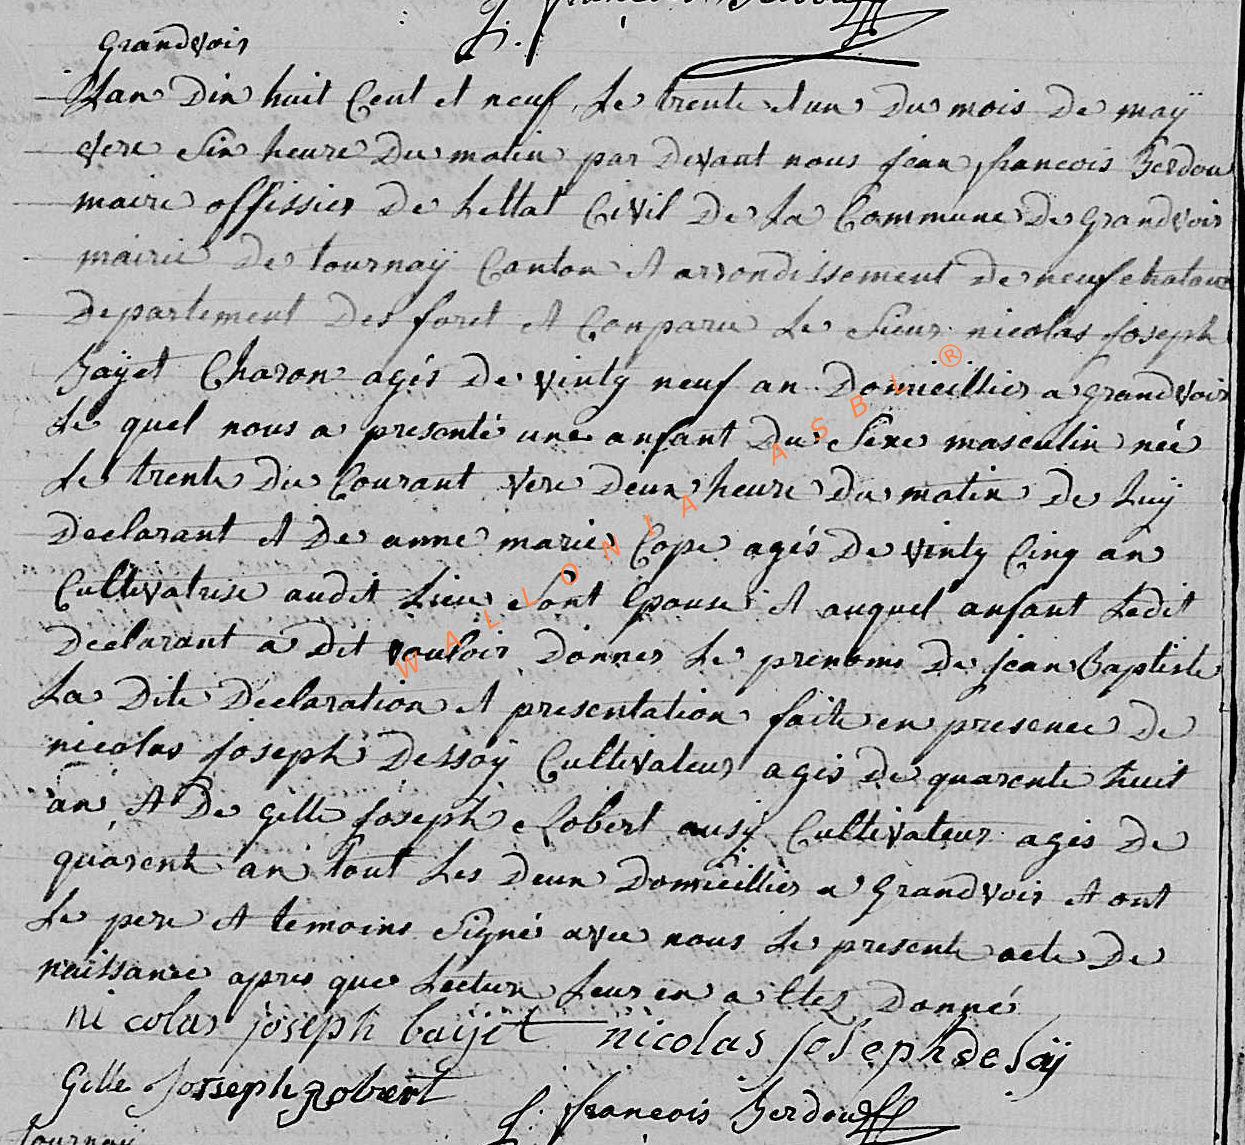 françois Berdou
Grandvoir
Lan Dix huit Cent et neuf, Le trente et un du mois De maÿ
vere Six heure Du matin par Devant nous jean françois Berdou
maire offissier De Lettat Civil De La Commune De grandvoir
mairie De tournaÿ Canton et arrondissement De neufchatau
Departement Des foret et Conparu Le Sieur nicolas joseph
Baÿet Charon agés De vinty neuf an Domicillier a grandvoir
Le quel nous a presenté une anfant Du Sexe masculin née
Le trente Du Courant vere Deux heure Du matin De Luÿ
Declarant et De anne marie Cope agés De vinty Cinq an
Cultivatrise audit Lieu Sont Epouse et auquel anfant Ledit
Declarant a Dit vouloir Donner Le prenome De jean Baptiste
La Dite Declaration et presentation faite en presence De
nicolas joseph Dessoÿ Cultivateur agis De quarente huit
an et De gille joseph Robert ausÿ Cultivateur agis De
quarent an tout Les Deux Domicillier a grandvoir et ont
Le pere et temoins Signé avec nous Le presente acte De
naissance apres que Lecture Leur en a Etez Donné
nicolas joseph baijet nicolas joseph desoÿ
Gille Josseph Robert
J: françois Berdou
tournaÿ
WALLONIA ASBL ®